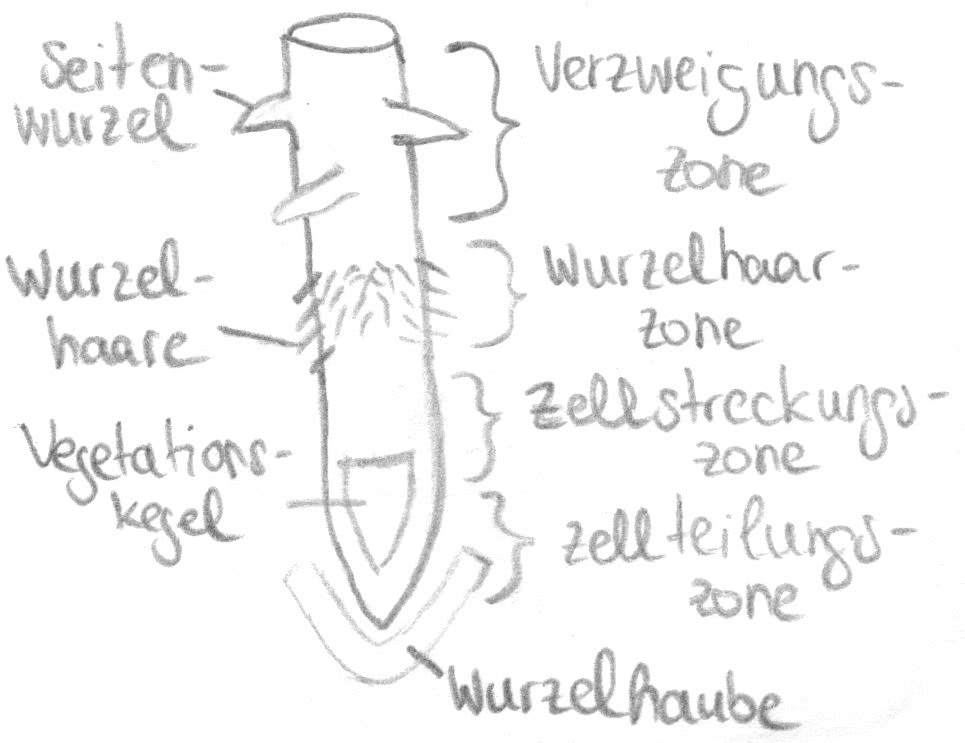 Seiten-
wurzel
Verzweigungs-
zone
Wurzel-
haare
Wurzelhaar-
zone
Zellstreckungs-
zone
Vegetations-
kegel
Zellteilungs-
zone
Wurzelhaube